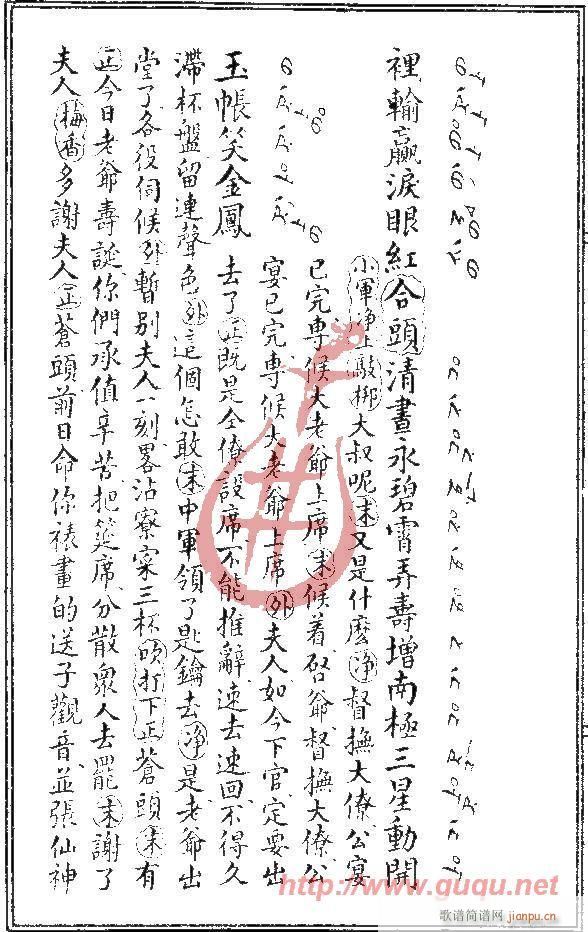 裡輸贏淚眼紅合頭清晝永碧霄弄壽增南極三星動開
小軍淨上敲梆大叔呢末又是什麽淨督撫大僚公宴
已完專候大老爺上席末候着启爺督撫大僚公
宴已完專候大老爺上席外夫人如今下官定要出
玉帳笑金鳳
去了正既是仝僚設席不能推辭速去速回不得久
滯杯盤留連聲色外這個怎敢末中軍領了匙鑰去淨是老爺出
堂了各役伺候外暫别夫人一刻畧沾寮寀三杯吹打下正蒼頭末有
正今日老爺壽誕你們承值辛苦把筵席分散衆人去罷末謝了
夫人梅香多謝夫人正蒼頭前日命你裱畫的送子觀音並張仙神
http://www.guqu.net
歌谱简谱网
jianpu.cn